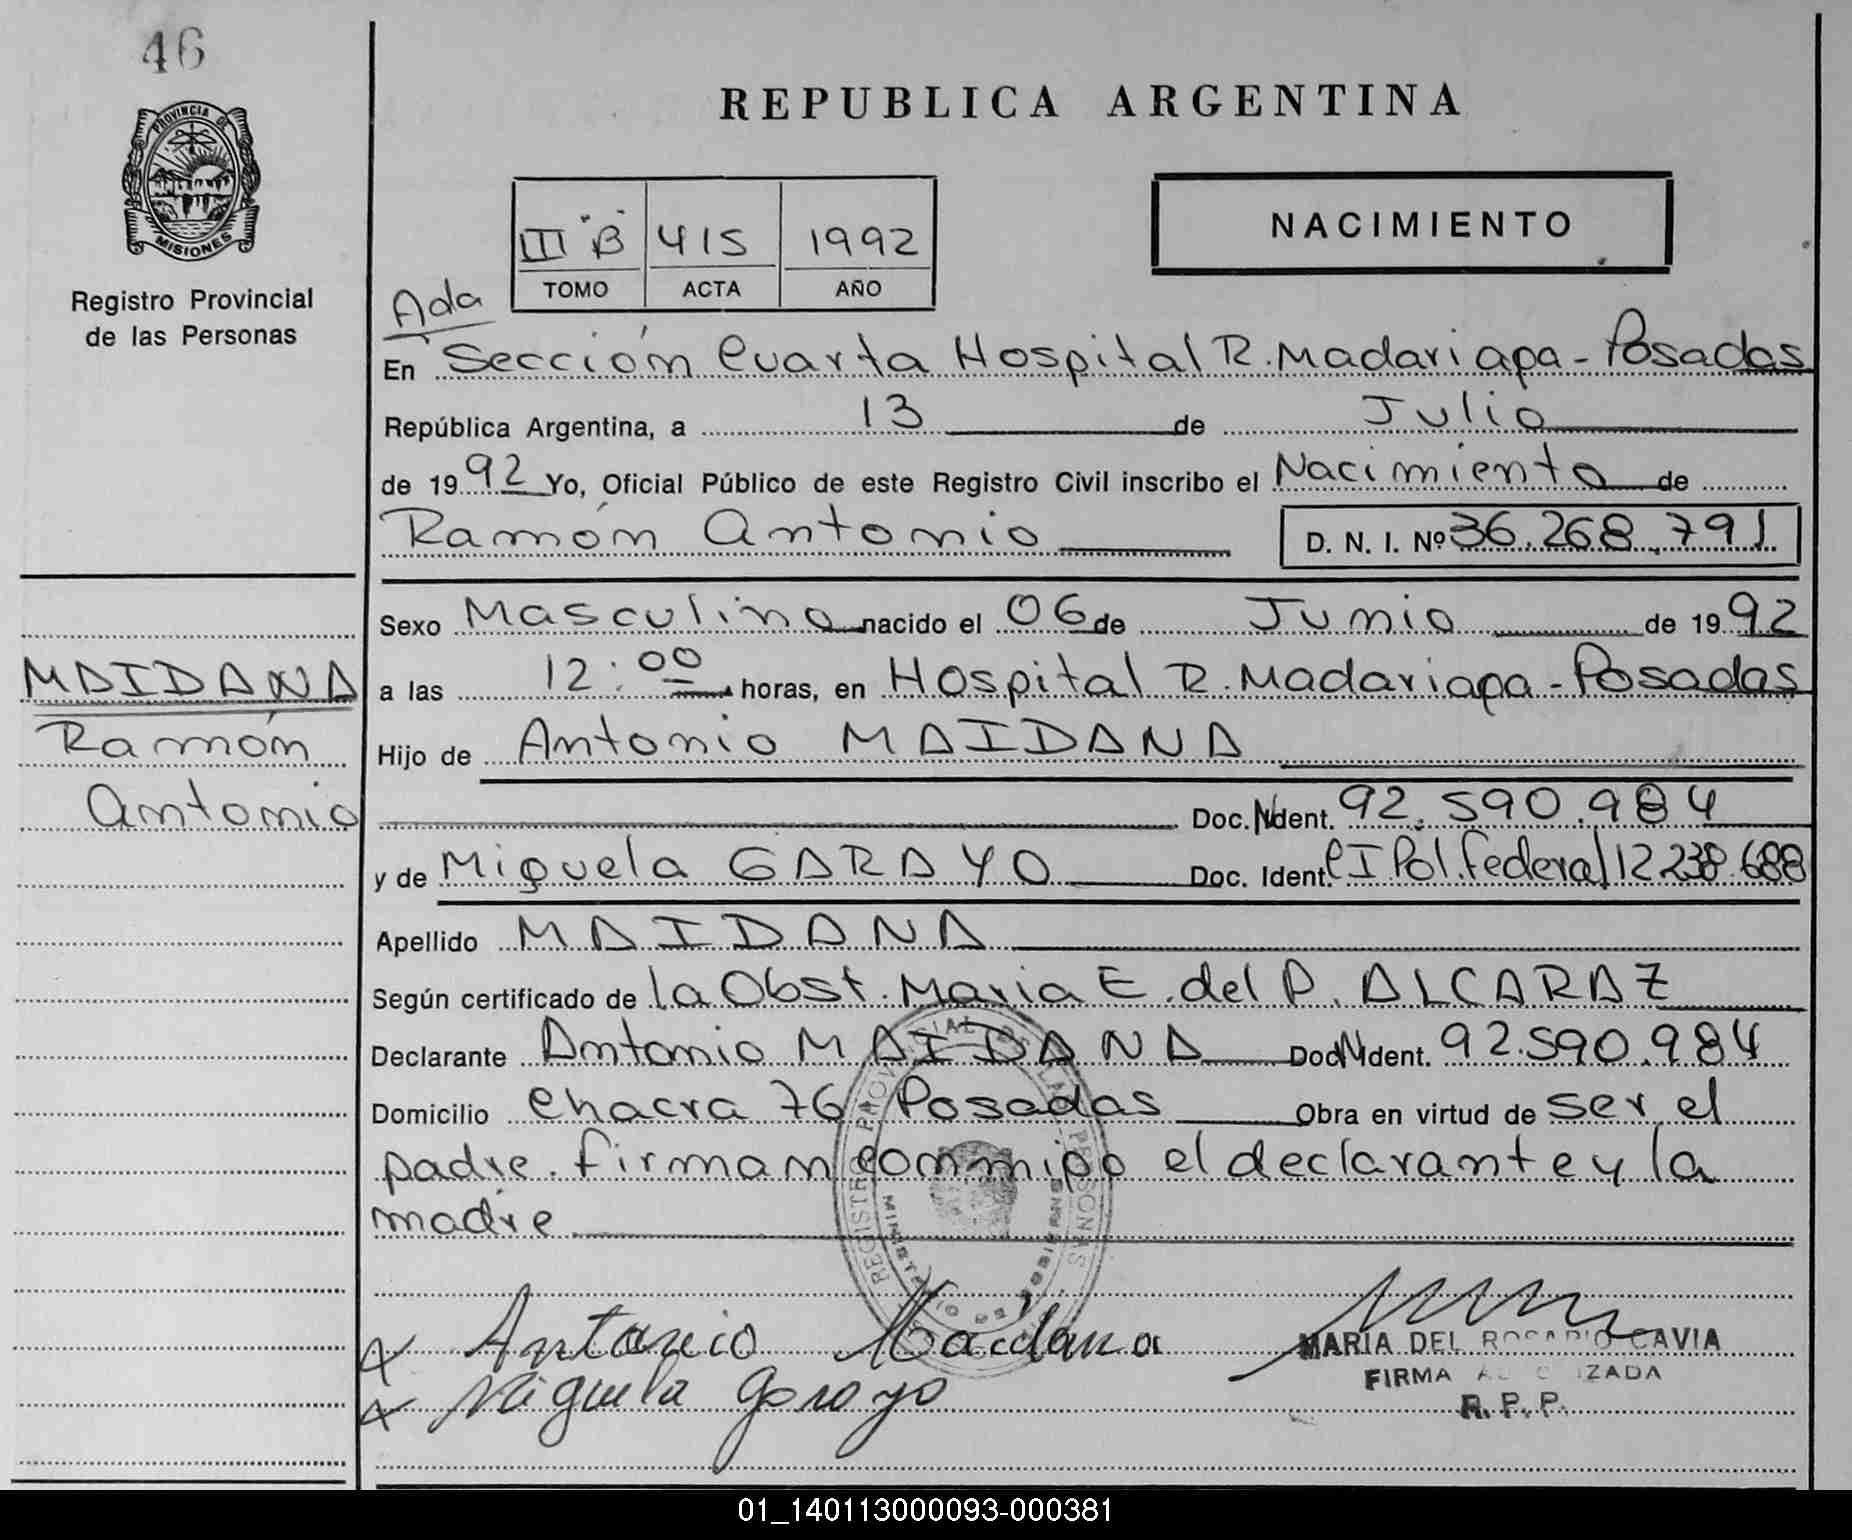 46
PROVINCIA DE
MISIONES
Registro Provincial
de las Personas
REPUBLICA ARGENTINA
III "B" 415 1992
TOMO ACTA AÑO
NACIMIENTO
Ada
En Sección Cuarta Hospital R. Madariaga - Posadas
República Argentina, a 13 de Julio
de 1992 Yo, Oficial Público de este Registro Civil inscribo el Nacimiento de
Ramón Antonio D. N. I. Nº 36.268.791
Sexo Masculino nacido el 06 de Junio de 1992
MAIDANA
Ramón
Antonio
a las 12:00 horas, en Hospital R. Madariaga - Posadas
Hijo de Antonio MAIDANA
Doc. Ident. 92.590.984
y de Miguela GARAYO Doc. Ident. CI Pol. Federal 12238.688
Apellido MAIDANA
Según certificado de la Obst. Maria E. del P. ALCARAZ
Declarante Antonio MAIDANA Doc. Ident. 92.590.984
Domicilio Chacra 76 Posadas Obra en virtud de ser el
padre. Firman conmigo el declarante y la
madre
REGISTRO PROVINCIAL DE LAS PERSONAS
Antonio Maidana
Miguela Garayo
MARIA DEL ROSARIO CAVIA
FIRMA AUTORIZADA
R. P. P.
01_140113000093-000381